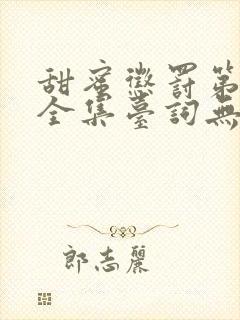 甜蜜懲罰第
全集臺詞無
郎志麗